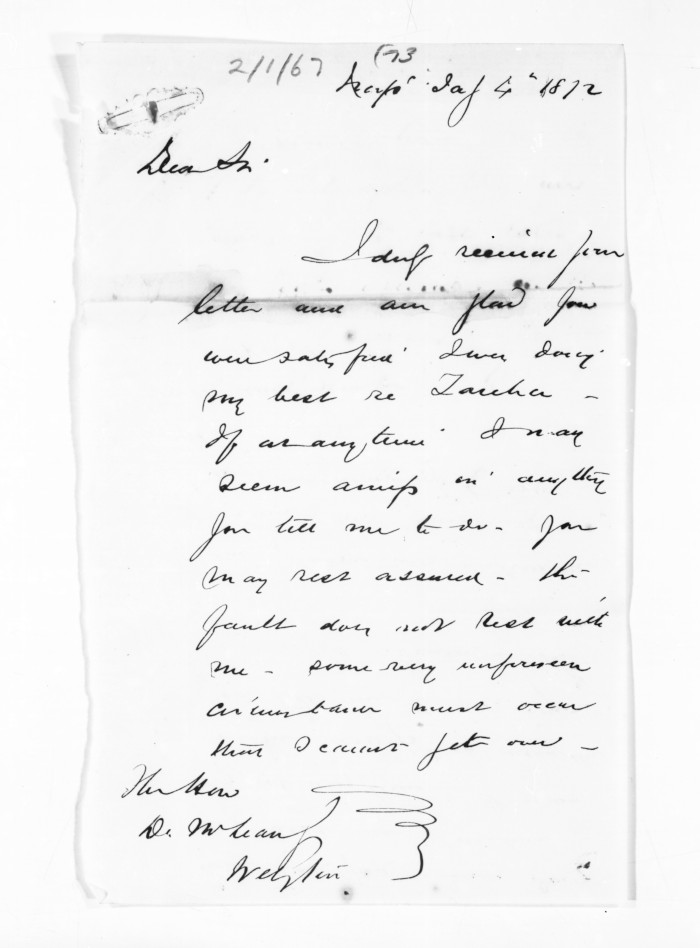 2/1/67 (73
Jay 4" 1872
Dear Sir
I duly received your
letter and am glad you
were satisfied I was doing
my best re
If at anytime I may
seem amiss in anything
you tell me to do - you
may rest assured - the
fault does not rest with
me - some very unforeseen
circumstance must occur
that I cannot get over -
The Hon
Dr McLean
Welgtn